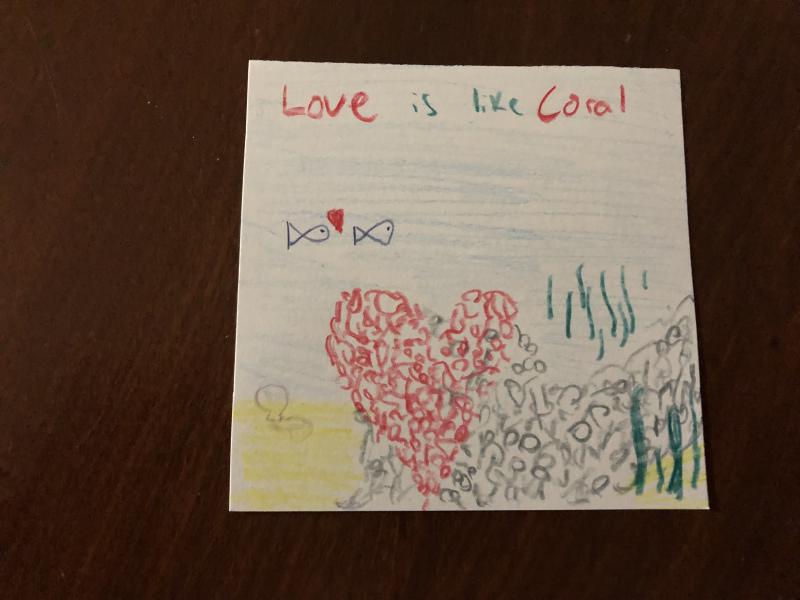 Love is like Coral